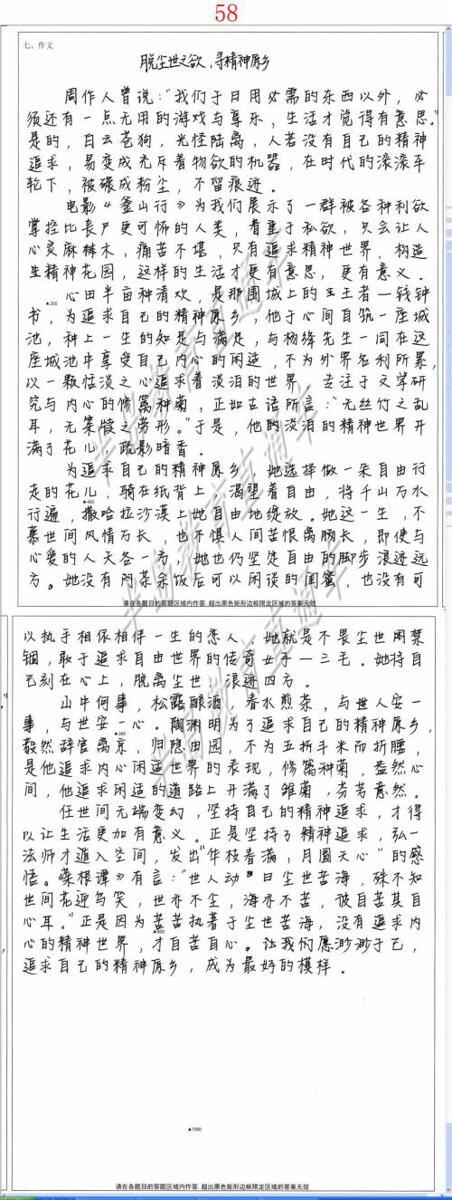 58
七、作文
脱尘世之欲,寻精神原乡
周作人曾说:“我们于日用必需的东西以外,必
须还有一点无用的游戏与享乐,生活才觉得有意思。”
是的,白云苍狗,光怪陆离,人若没有自己的精神
追求,易变成充斥着物欲的机器,在时代的滚滚车
轮下,被碾成粉尘,不留痕迹。
电影《釜山行》为我们展示了一群被各种利欲
掌控比丧尸更可怖的人类,看重于私欲,只会让人
心灵麻木,痛苦不堪,只有追求精神世界,构造
生精神花园,这样的生活才更有意思,更有意义。
心田半亩种清欢,是那围城上的王者—钱钟
▲200
书,为追求自己的精神原乡,他于心间自筑一座城
池,种上一生的知足与满足,与杨绛先生一同在这
座城池中享受自己内心的闲适,不为外界名利所累,
以一颗恬淡之心追求着淡泊的世界,去注于文学研
究与内心的修篱种菊,正如古语所言:“无丝竹之乱
耳,无案牍之劳形。”于是,他的淡泊的精神世界开
满了花儿,疏影暗香。
为追求自己的精神原乡,她选择做一朵自由行
走的花儿,骑在纸背上,渴望着自由,将千山万水
▲400
行遍,撒哈拉沙漠上她自由地绽放。她这一生,不
慕世间风情万长,也不惧人间苦恨离肠长,即使与
心爱的人天各一方,她也仍坚定自由的脚步浪迹远
方。她没有闲茶余饭后可以闲谈的闺蜜,也没有可
请在各题目的答题区域内作答,超出黑色矩形边框限定区域的答案无效
以执手相依相伴一生的恋人,她就是不畏尘世闲禁
锢,敢于追求自由世界的传奇女子—三毛。她将自
己刻在心上,脱离尘世,浪迹四方。
山中何事,松露酿酒,春水煎茶,与世人安一
事,与世安一心。陶渊明为了追求自己的精神原乡,
毅然辞官离京,归隐田园,不为五折斗米而折腰,
是他追求内心闲适世界的表现,修篱种菊,盎然心
间,他追求闲适的道路上开满了雏菊,芬芳意然。
任世间无端变幻,坚持自己的精神追求,才得
以让生活更加有意义。正是坚持了精神追求,弘一
法师才遁入空间,发出“华枝春满,月圆天心”的感
悟。《菜根谭》有言:“世人动曰尘世苦海,殊不知
世间花迎鸟笑,世亦不尘,海亦不苦,彼自苦其自
心耳。”正是因为苦苦执著于尘世苦海,没有追求内
心的精神世界,才自苦自心。让我们愿渺渺于己,
追求自己的精神原乡,成为最好的模样。
▲1000
请在各题目的答题区域内作答,超出黑色矩形边框限定区域的答案无效